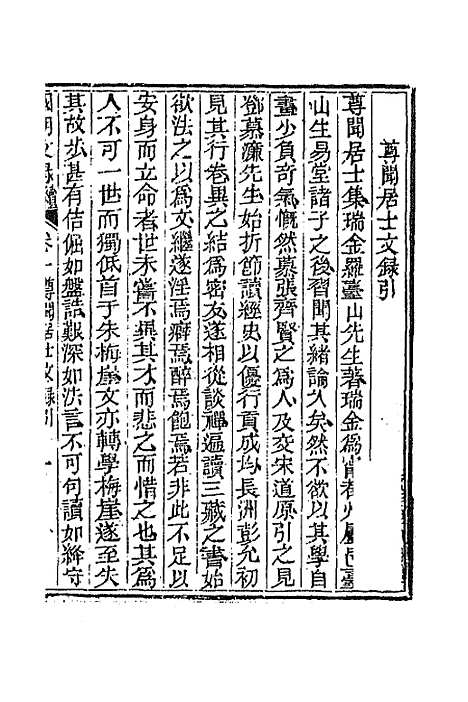 尊聞居士文錄引
尊聞居士集瑞金羅臺山先生著瑞金為寧都州屬邑臺
山生易堂諸子之後習聞其緒論久矣然不欲以其學自
畫少負奇氣慨然慕張齊賢之為人及交宋道原引之見
鄧慕濂先生始折節讀經史以優行貢成均長洲彭允初
見其行卷異之結為密友遂相從談禪遍讀三藏之書始
欲法之以為文繼遂淫焉癖焉醉焉飽焉若非此不足以
安身而立命者世未嘗不異其才而悲之而惜之也其為
人不可一世而獨低首于朱梅崖文亦轉學梅崖遂至失
其故步甚有佶倔如盤誥艱深如法言不可句讀如絳守
國朝文錄續 卷一 尊聞居士文錄引 一